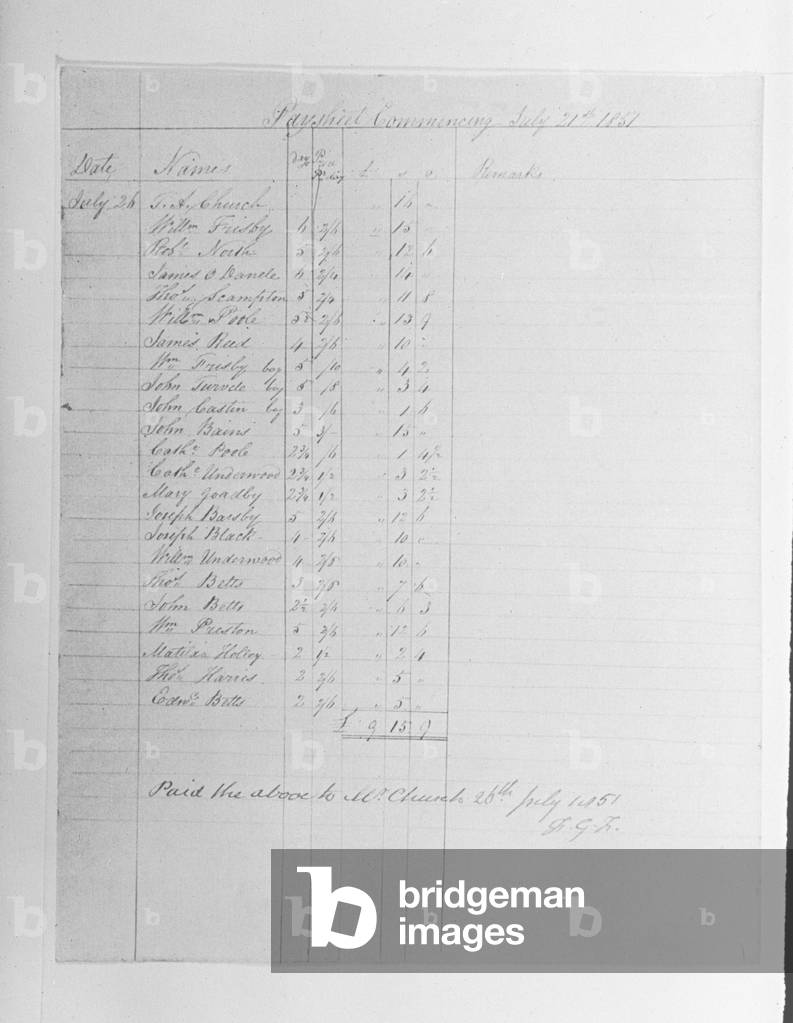 Paysheet Commencing July 21st 1851
Date Names Days Per Day £ s d Remarks
July 26 T. A. Church " 16 "
Willm Frisby 6 2/6 " 15 "
Robt North 5 2/6 " 12 6
James O Danele 6 2/4 " 14 "
Thos Scampton 5 2/4 " 11 8
Willm Poole 5½ 2/6 " 13 9
James Reed 4 2/6 " 10 "
Wm Frisby boy 5 /10 " 4 2
John Turvele boy 5 /8 " 3 4
John Castin boy 3 /6 " 1 6
John Bains 5 3/- " 15 "
Cathe Poole 2¾ /6 " 1 4½
Cathe Underwood 2¾ 1/2 " 3 2½
Mary Goadby 2¾ 1/2 " 3 2½
Joseph Barsby 5 2/6 " 12 6
Joseph Black 4 2/6 " 10 "
Willm Underwood 4 2/6 " 10 "
Thos Betts 3 2/6 " 7 6
John Betts 2½ 2/6 " 6 3
Wm Preston 5 2/6 " 12 6
Matilda Holley 2 1/2 " 2 4
Thos Harris 2 2/6 " 5 "
Edwd Betts 2 2/6 " 5 "
£ 9 15 9
Paid the above to Mr Church 26th July 1851
bridgeman
images